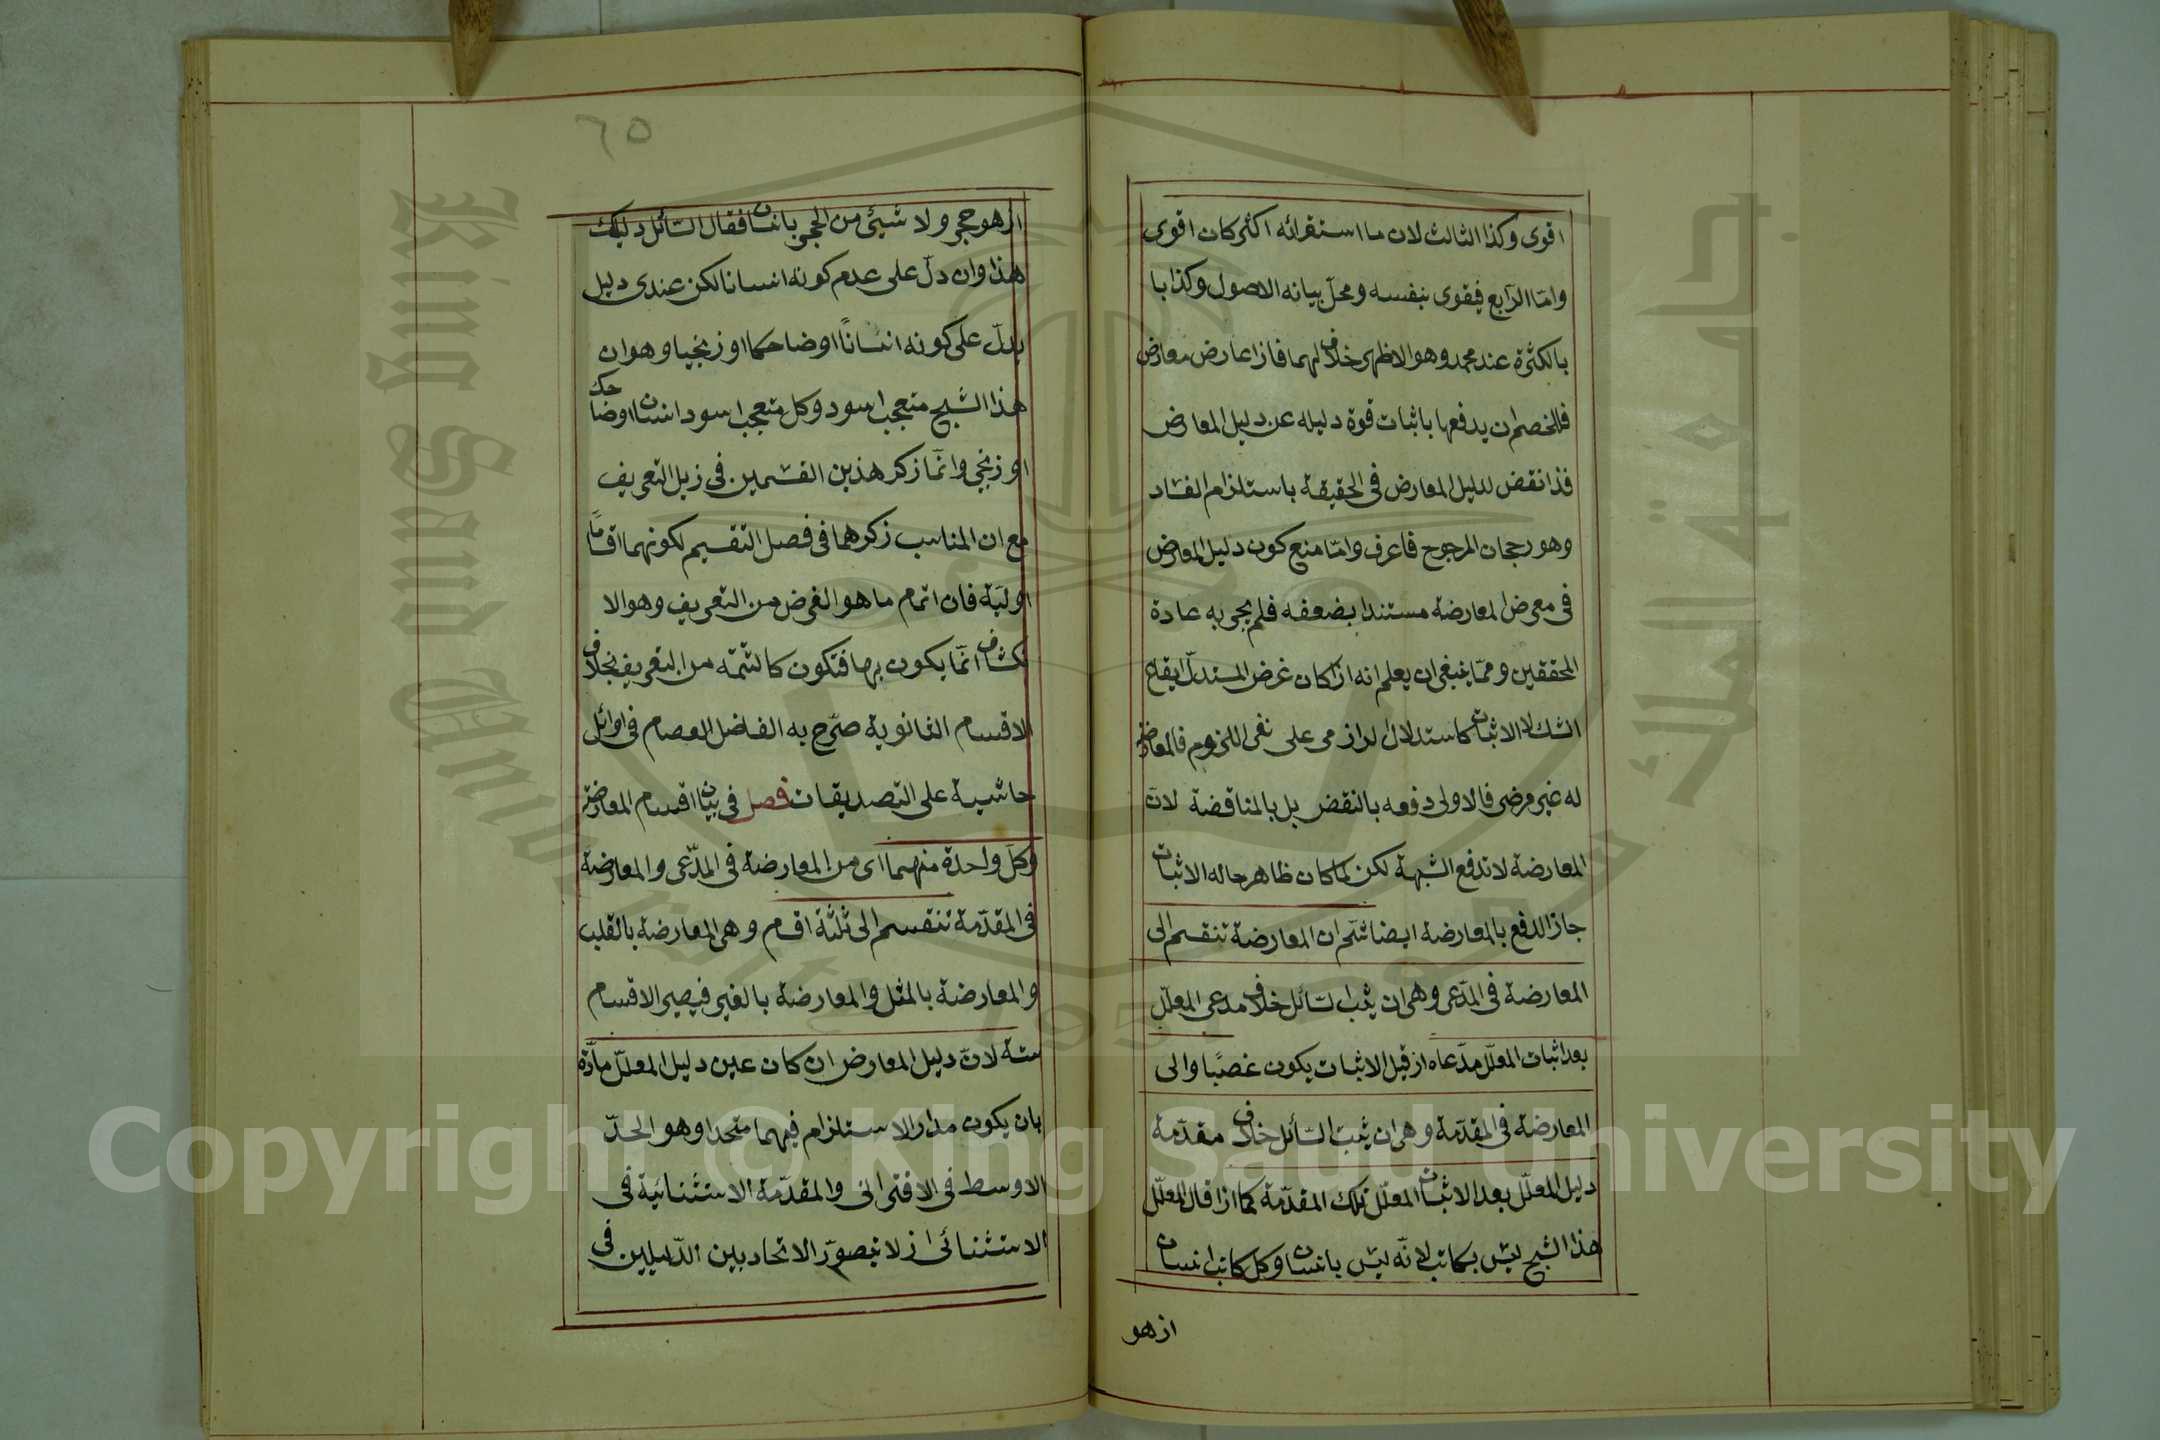 اقوى وكذا الثالث لان ما استقرائه اكثر كان اقوى
وامّا الرّابع فيقوى بنفسه ومحلّ بيانه الاصول وكذا با
بالكثرة عند محمد وهو الاظهر خلاف لهما فاذا عارض معارض
فللخصم ان يدفعها باثبات قوة دليله عن دليل المعارض
فذا نقض لدليل المعارض فى الحقيقة باستلزام الفساد
وهو رجحان المرجوح فاعرف وامّا منع كون دليل المعارض
فى معرض المعارضة مستندا بضعفه فلم يجر به عادة
المحققين وممّا ينبغى ان يعلم انه اذا كان غرض المستدلّ ايقاع
الشك لا الاثبات كاستدلال الرازى على نفى اللزوم فالمعارضة
له غير مرضى فالاولى دفعه بالنقض بل بالمناقضة لانّ
المعارضة لا تدفع الشبهة لكن لما كان ظاهر حاله الاثبات
جاز الدفع بالمعارضة ايضا ثمّ ان المعارضة تنقسم الى
المعارضة فى المدّعى وهى ان يثبت السّائل خلاف مدعى المعلّل
بعد اثبات المعلّل مدّعاه اذ قبل الاثبات يكون غصبًا والى
المعارضة فى المقدّمة وهى ان يثبت السّائل خلاف مقدّمة
دليل المعلّل بعد الاثبات المعلّل تلك المقدّمة كما اذا قال المعلّل
هذا الشبح ليس بكاتب لانّه ليس بانسان وكل كاتب انسان
اذ هو
٦٥
اذ هو حجر ولا شيئ من الحجر بانسان فقال السّائل دليلك
هذا وان دلّ على عدم كونه انسانا لكن عندى دليل
يدلّ على كونه انسانًا او ضاحكا او زنجيا وهو ان
هذا الشبح متعجب اسود وكل متعجب اسود انسان او ضاحك
او زنجى وانّما ذكر هذين القسمين فى ذيل التعريف
مع ان المناسب ذكرهما فى فصل التقسيم لكونهما اقسامًا
اوليّة فان اتمام ما هو الغرض من التعريف وهو الا
نكشاف انّما يكون بها فتكون كالتتمّة من التعريف بخلاف
الاقسام الثانوية صرّح به الفاضل العصام فى اوائل
حاشية على التصديقات فصل فى بيان اقسام المعارضة
وكلّ واحدة منهما اى من المعارضة فى المدّعى والمعارضة
فى المقدّمة تنقسم الى ثلثة اقسام وهى المعارضة بالقلب
والمعارضة بالمثل والمعارضة بالغير فيصير الاقسام
ستة لانّ دليل المعارض ان كان عين دليل المعلّل مادّة
بان يكون مدار الاستلزام فيهما متحدا وهو الحدّ
الاوسط فى الاقترانى والمقدّمة الاستثنائية فى
الاستثنائى اذ لا يتصوّر الاتحاد بين الدّليلين فى
Copyright © King Saud University
King Saud University
جامعة الملك
1957